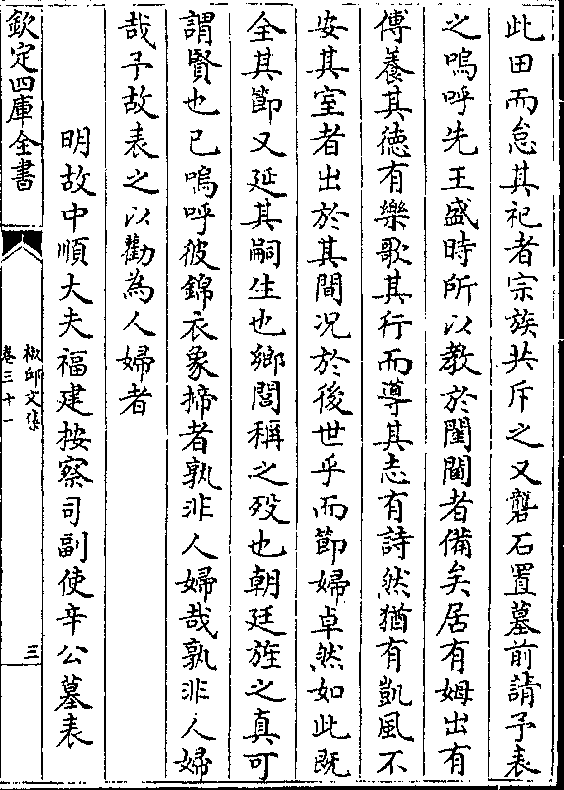 此田而怠其祀者宗族共斥之又礱石置墓前請予表
之嗚呼先王盛時所以教於閨閫者備矣居有姆出有
傅養其徳有樂歌其行而導其志有詩然猶有凱風不
安其室者出於其間况於後世乎而節婦卓然如此既
全其節又延其嗣生也鄉閭稱之殁也朝廷旌之真可
謂賢也已嗚呼彼錦衣象揥者孰非人婦哉孰非人婦
哉予故表之以勸為人婦者
明故中順大夫福建按察司副使辛公墓表
欽定四庫全書
椒邱文集
卷三十一
三